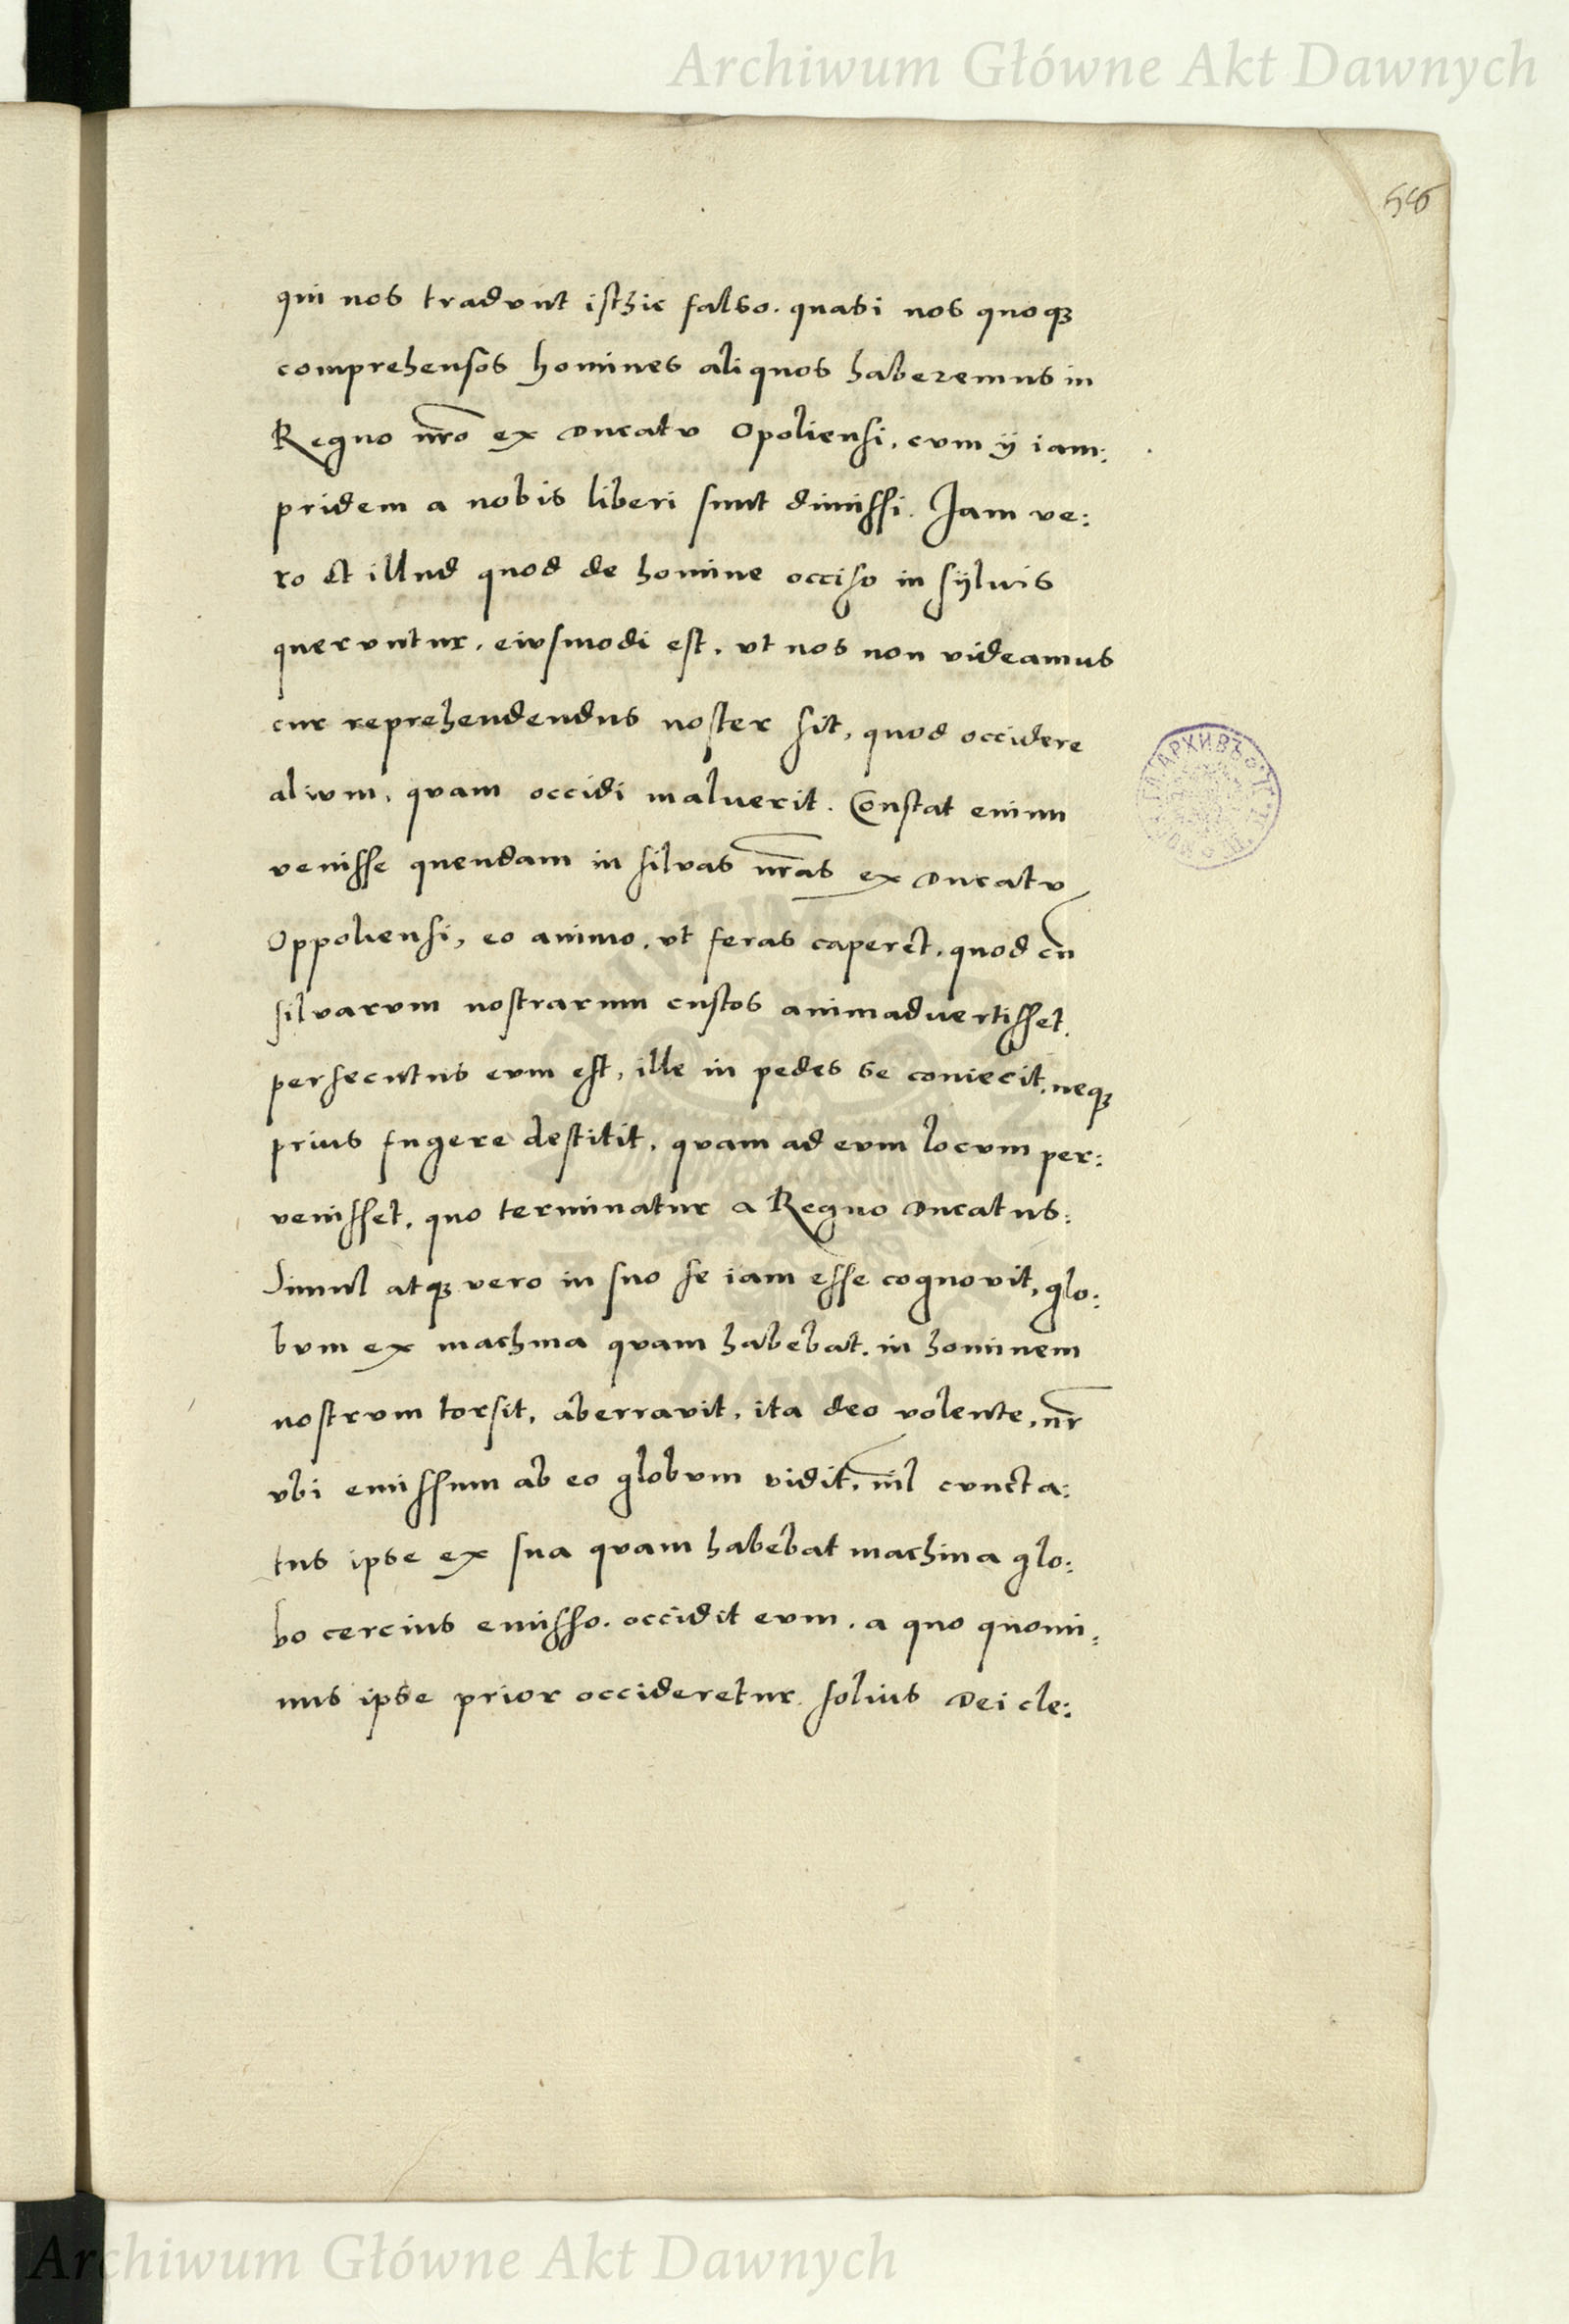 Archiwum Główne Akt Dawnych
qui nos tradunt isthic falso. quasi nos quoqꝫ
comprehensos homines aliquos haberemus in
Regno nr̃o ex Ducatu Opoliensi, cum ij iam:
pridem a nobis liberi sunt dimissi. Iam ve:
ro et illud quod de homine occiso in sijluis
queruntur, eiusmodi est, vt nos non videamus
cur reprehendendus noster sit, quod occidere
alium, quam occidi maluerit. Constat enim
venisse quendam in silvas nr̃as ex Ducatu
Oppoliensi, eo animo, vt feras caperet, quod cũ
silvarum nostrarum custos animadvertisset,
persecutus eum est, ille in pedes se coniecit, neqꝫ
prius fugere destitit, quam ad eum locum per:
venisset, quo terminatur a Regno Ducatus:
Simul atqꝫ vero in suo se iam esse cognovit, glo:
bum ex machina quam habebat, in hominem
nostrum torsit, aberravit, ita deo volente, nr̃
vbi emissum ab eo globum vidit, nĩl cuncta:
tus ipse ex sua quam habebat machina glo:
bo cercius emisso, occidit eum, a quo quomi:
nus ipse prior occideretur, solius Dei cle:
Archiwum Główne Akt Dawnych